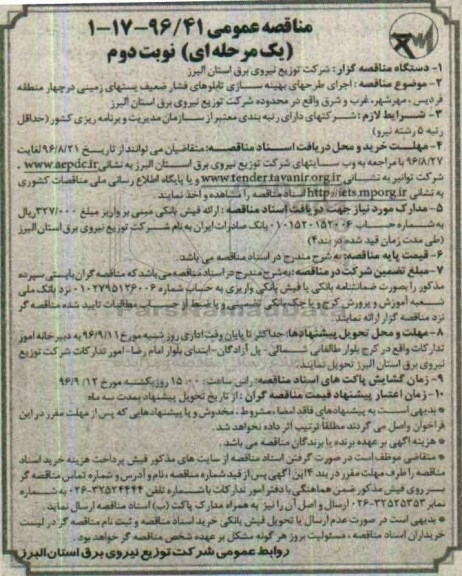 مناقصه عمومی ۹۶/۴۱-۱۷-۱
(یک مرحله ای) نوبت دوم
۱- دستگاه مناقصه گزار: شرکت توزیع نیروی برق استان البرز
۲- موضوع مناقصه: اجرای طرحهای بهینه سازی تابلوهای فشار ضعیف پستهای زمینی درچهار منطقه
فردیس، مهرشهر، غرب و شرق واقع در محدوده شرکت توزیع نیروی برق استان البرز
۳- شرایط لازم: شرکتهای دارای رتبه بندی معتبر از سازمان مدیریت و برنامه ریزی کشور (حداقل
رتبه ۵ رشته نیرو)
۴- مهلت خرید و محل دریافت اسناد مناقصه: متقاضیان می توانند از تاریخ ۹۶/۸/۲۱ لغایت
۹۶/۸/۲۷ با مراجعه به وب سایتهای شرکت توزیع نیروی برق استان البرز به نشانی www.aepdc.ir ،
شرکت توانیر به نشانی www.tender.tavanir.org.ir و یا پایگاه اطلاع رسانی ملی مناقصات کشوری
به نشانی http://iets.mporg.ir اسناد مناقصه را مشاهده و اخذ نمایند.
۵- مدارک مورد نیاز جهت دریافت اسناد مناقصه: ارائه فیش بانکی مبنی بر واریز مبلغ ۳۲۷/۰۰۰ ریال
به شماره حساب ۰۱۰۱۵۲۰۱۵۲۰۰۶ بانک صادرات ایران به نام شرکت توزیع نیروی برق استان البرز
(طی مدت زمان قید شده در بند ۴)
۶- قیمت پایه مناقصه: به شرح مندرج در اسناد مناقصه می باشد.
۷- مبلغ تضمین شرکت در مناقصه: به شرح مندرج در اسناد مناقصه می باشد که مناقصه گران بایستی سپرده
مذکور را بصورت ضمانتنامه بانکی یا فیش بانکی واریزی به حساب شماره ۰۱۰۲۷۹۵۱۲۶۰۰۶ نزد بانک ملی
شعبه آموزش و پرورش کرج و یا چک بانکی تضمینی و یا ضبط از حساب مطالبات تایید شده مناقصه گر
نزد مناقصه گزار ارائه نمایند.
۸- مهلت و محل تحویل پیشنهادها: حداکثر تا پایان وقت اداری روز شنبه مورخ ۹۶/۹/۱۱ به دبیرخانه امور
تدارکات واقع در کرج بلوار طالقانی شمالی- پل آزادگان- ابتدای بلوار امام رضا- امور تدارکات شرکت توزیع
نیروی برق استان البرز تحویل نمایند.
۹- زمان گشایش پاکت های اسناد مناقصه: راس ساعت ۱۵:۰۰ روز یکشنبه مورخ ۹۶/۹/۱۲
۱۰- زمان اعتبار پیشنهاد قیمت مناقصه گران: از تاریخ تحویل پیشنهاد بمدت سه ماه
* بدیهی است به پیشنهادهای فاقد امضا، مشروط، مخدوش و یا پیشنهادهایی که پس از مهلت مقرر در این
فراخوان واصل می گردند مطلقا ترتیب اثر داده نخواهد شد.
* هزینه آگهی بر عهده برنده یا برندگان مناقصه می باشد.
* متقاضی موظف است در صورت گرفتن اسناد مناقصه از سایت های مذکور فیش پرداخت هزینه خرید اسناد
مناقصه را ظرف مهلت مقرر در بند ۴ این آگهی پس از قید شماره مناقصه، نام و آدرس و شماره تماس مناقصه گر
بر روی فیش مذکور ضمن هماهنگی با دفتر امور تدارکات با شماره تلفن ۳۲۵۲۴۴۴۴-۰۲۶ به شماره
نمابر ۳۲۵۲۵۳۵۳-۰۲۶ ارسال و اصل آن را نیز به همراه مدارک پاکت (ب) اسناد مناقصه ارسال نماید.
* بدیهی است در صورت عدم ارسال یا تحویل فیش بانکی خرید اسناد مناقصه و ثبت نام مناقصه گر در لیست
خریداران اسناد مناقصه، مسئولیت بروز هر گونه مشکل بر عهده شخص مناقصه گر خواهد بود.
روابط عمومی شرکت توزیع نیروی برق استان البرز